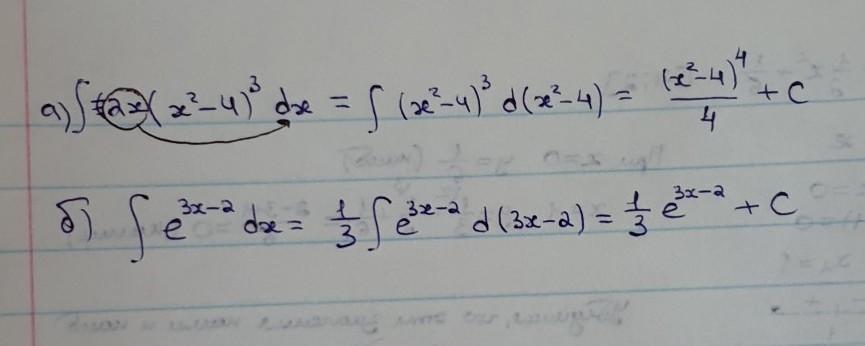 а) ∫ 2x(x²-4)³ dx = ∫ (x²-4)³ d(x²-4) = (x²-4)⁴/4 + C
б) ∫ e^(3x-2) dx = 1/3 ∫ e^(3x-2) d(3x-2) = 1/3 e^(3x-2) + C